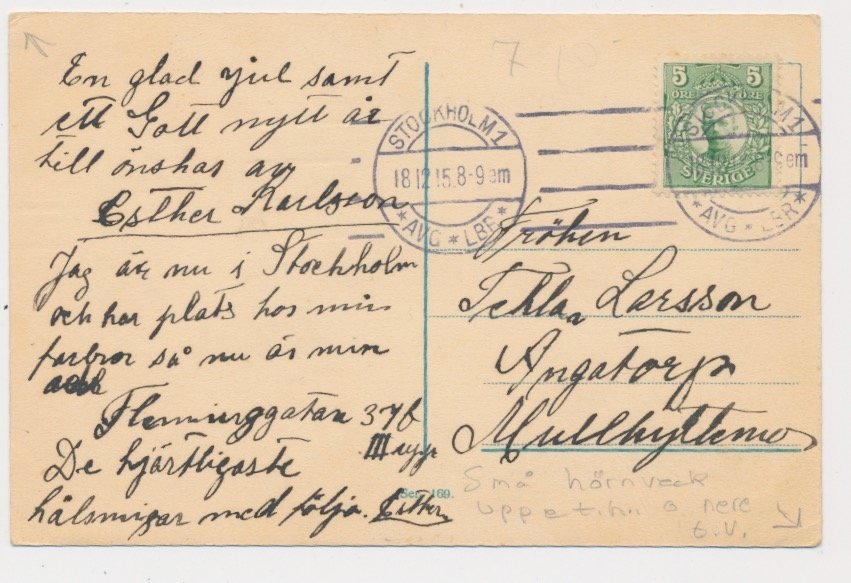 En glad jul samt
ett Gott nytt år
till önskas av
Esther Karlsson
Jag är nu i Stockholm
och har plats hos min
farbror så nu är min
Fleminggatan 37b
III upp
De hjärtligaste
hälsningar med följa. Esther.
Ser. 169.
7
5 5
ÖRE ÖRE
SVERIGE
STOCKHOLM 1
18 12 15. 8-9 em
* AVG * LBR *
LM 1
9 em
* AVG * LBR *
Fröken
Tekla Larsson
Ängatorp
Mullhyttemo
Små hörnveck
uppe t.h. o nere
t.v.